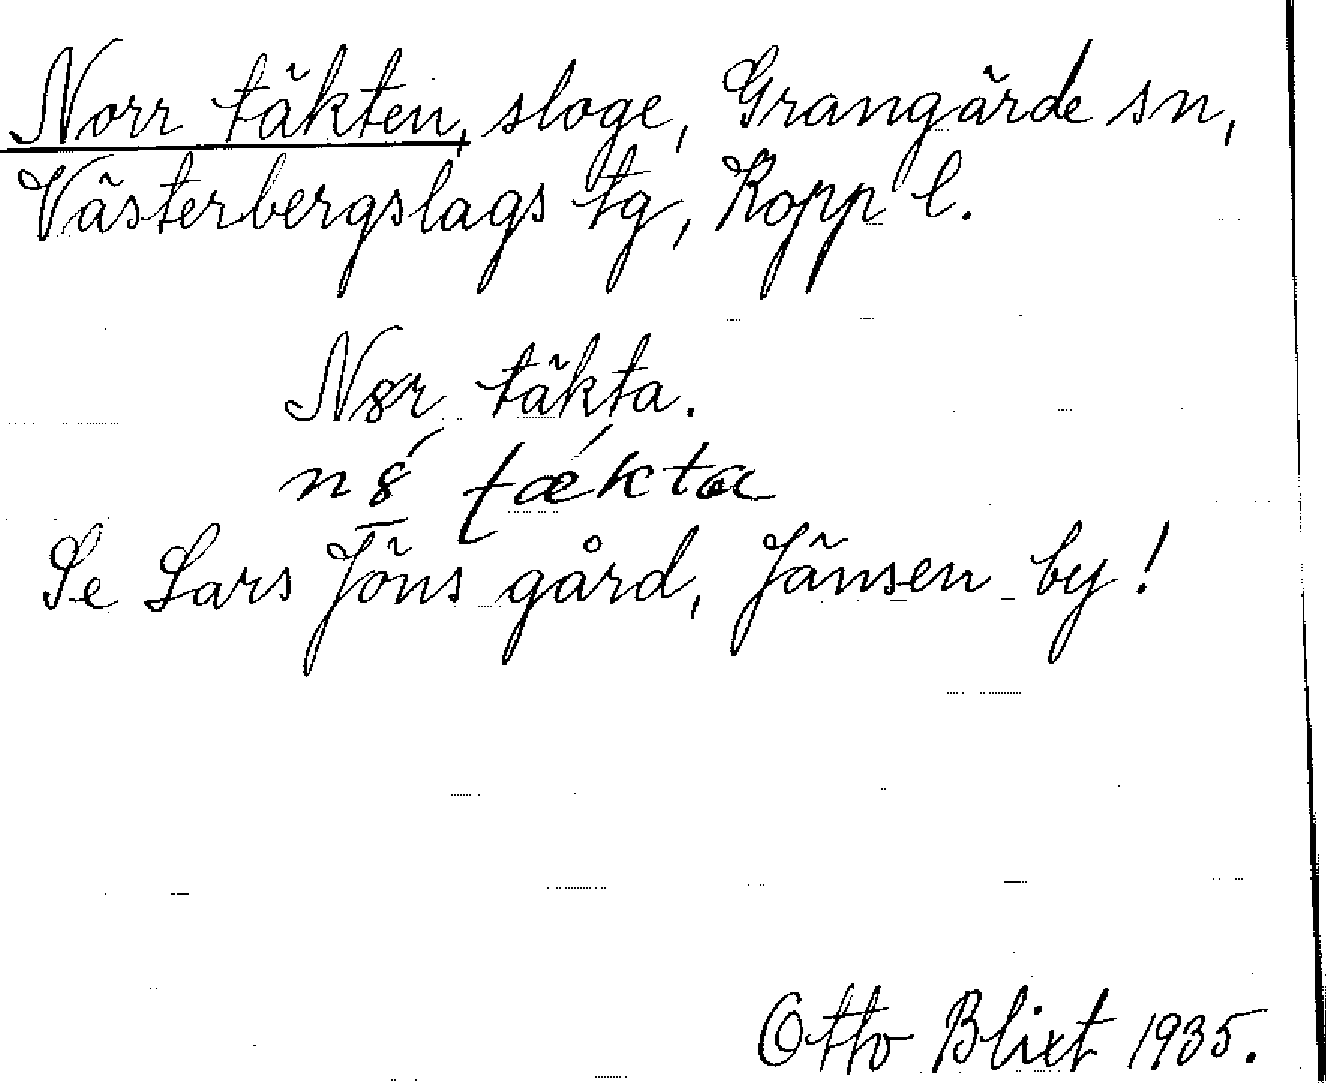 Norr täkten, sloge, Grangärde sn,
Västerbergslags tg, Kopp l.
N8r täkta.
n8́ tǽkta
Se Lars Jöns gård, Jänsen by!
Otto Blixt 1935.